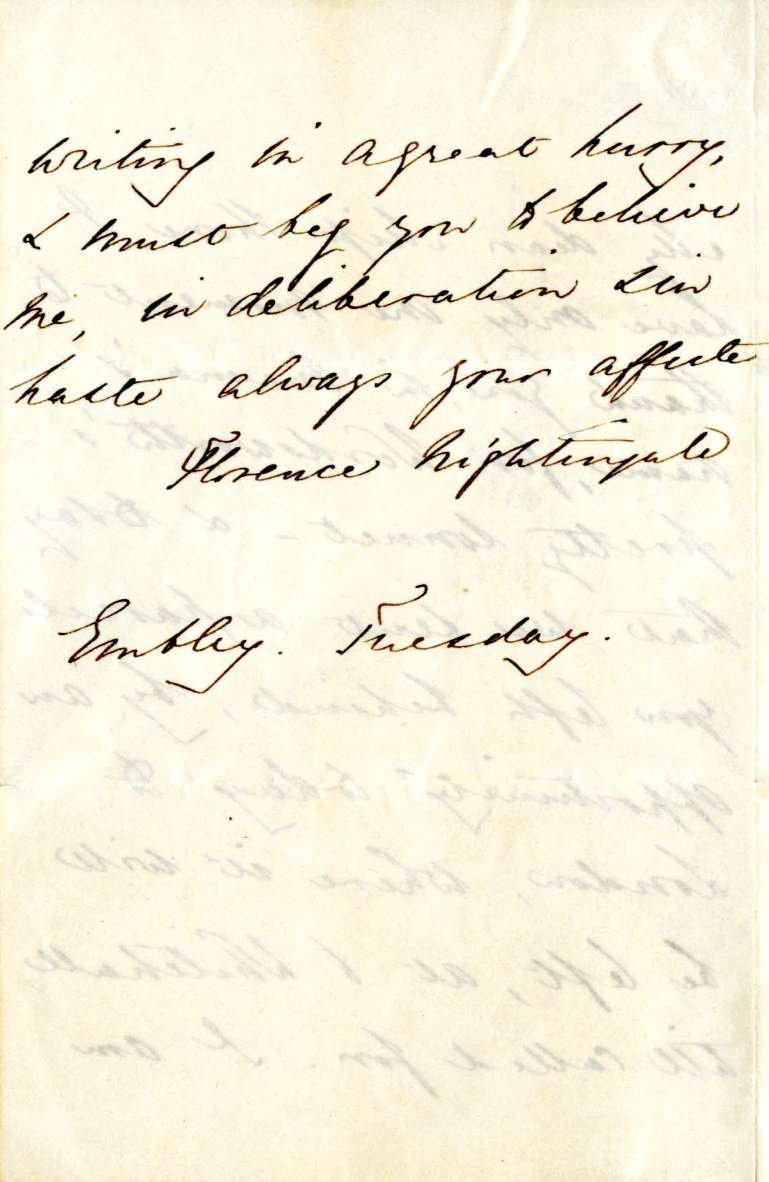 writing in a great hurry,
& must beg you to believe
me, in deliberation & in
haste always your affecte
Florence Nightingale
Embley. Tuesday.